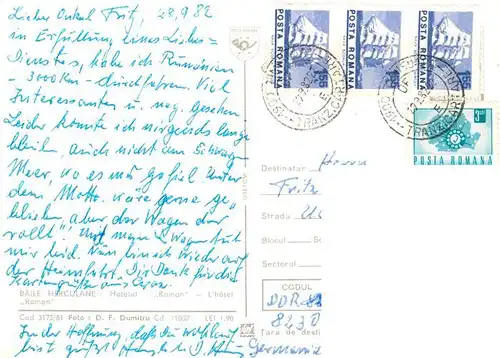 Lieber Onkel Fritz, 28.9.82
in Erfüllung eines Liebes-
Dienstes, habe ich Rumänien
- 3000 km - durchfahren. Viel
Interessantes u. neg. gesehen
Leider konnte ich nirgends lange
bleiben, auch nicht am Schwarzen
Meer, wo es mir gefiel. Unter
dem Motto: "wäre gerne ge-
blieben, aber der Wagen der
rollt". Und mein Wagen tut
mir leid. Nun bin ich wieder auf
der Heimfahrt. Dir Dank für die
Kartengrüße aus
BĂILE HERCULANE: Hotelul "Roman" - L'hôtel
"Roman"
Cod 3175/81 Foto: D. F. Dumitru Cd. 11007 LEI 1,90
In der Hoffnung, daß Du wohlauf
bist grüßt
POSTA ROMANA
POSTA ROMANA
POSTA ROMANA
TRANZIT
TRANZIT
POSTA ROMANA
Destinatar Herrn
Fritz
Strada
Blocul Sc
Sectorul
CODUL
DDR
Țara de desti
Germania